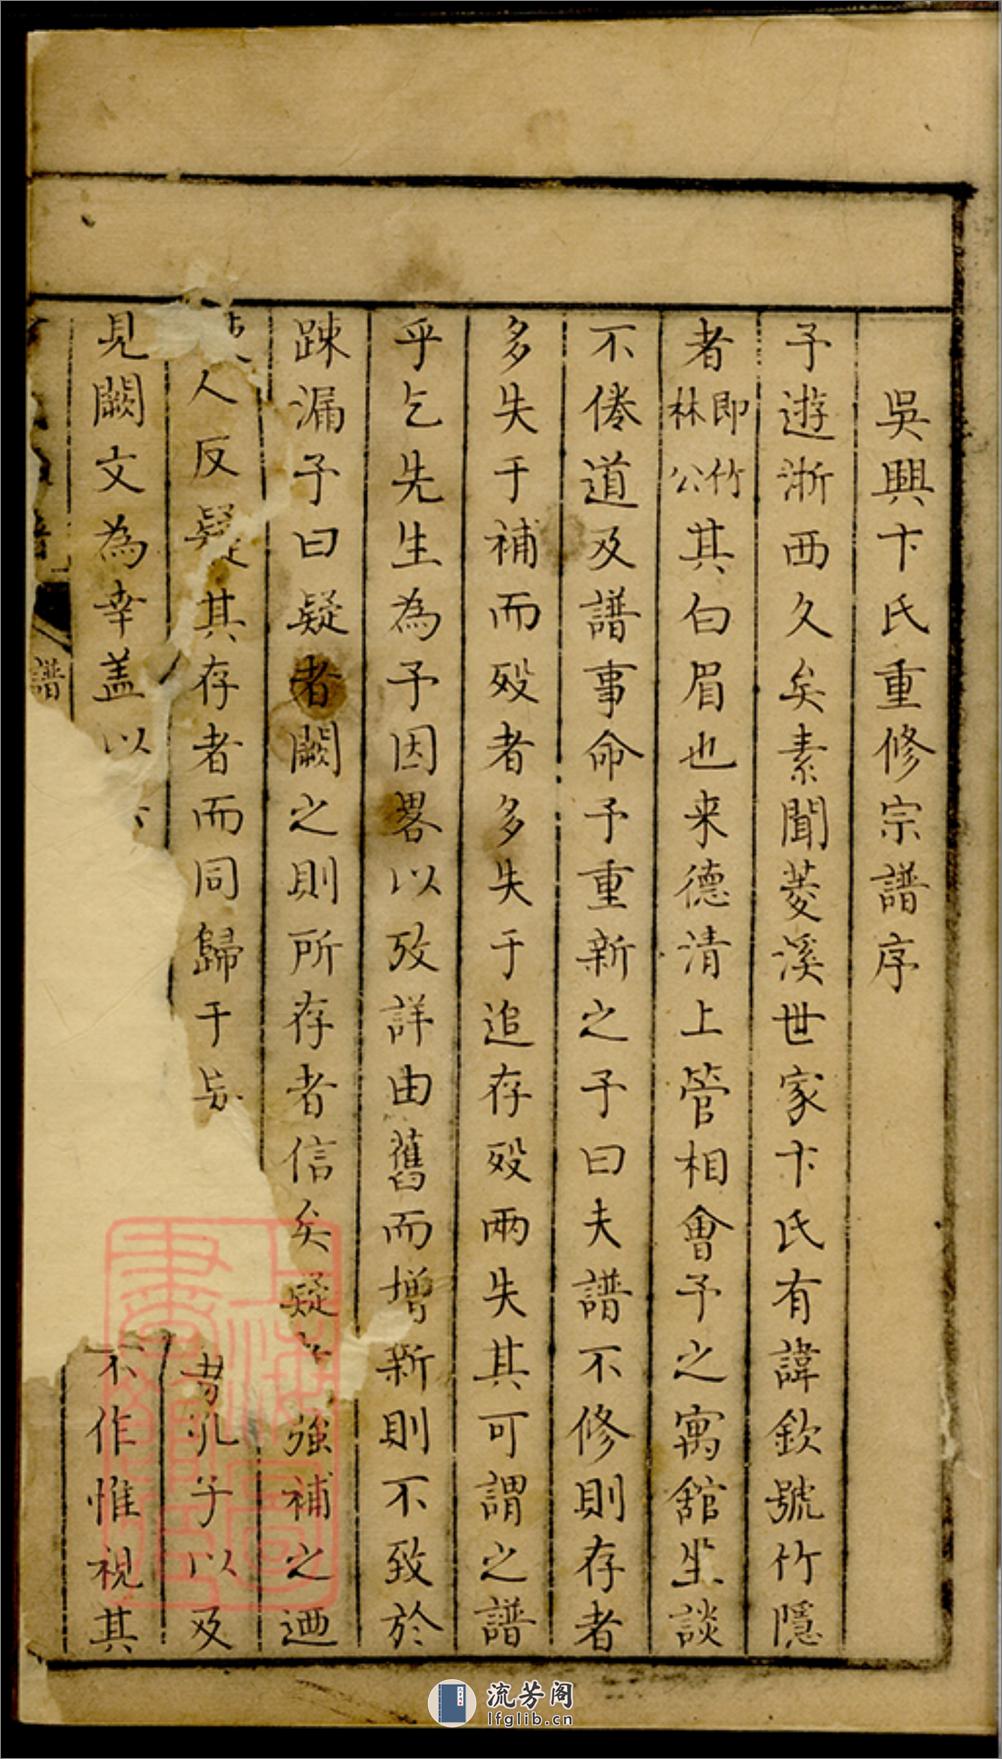 吳興卞氏重修宗譜序
予遊浙西久矣素聞菱溪世家卞氏有諱欽號竹隱
者即竹林公其白眉也来德清上管相會予之寓舘坐談
不倦道及譜事命予重新之予曰夫譜不修則存者
多失于補而歿者多失于追存歿兩失其可謂之譜
乎乞先生為予因畧以攷詳由舊而增新則不致於
踈漏予曰疑者闕之則所存者信矣疑 強補之迺
人反疑其存者而同歸于 昔孔子以及
見闕文為幸盖以 不作惟視其
譜
流芳阁
lfglib.cn